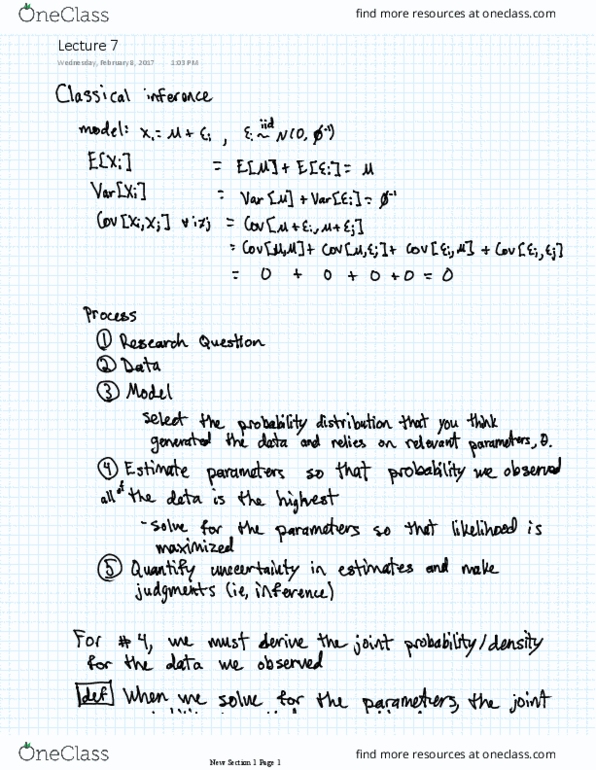 OneClass
find more resources at oneclass.com
Lecture 7
Wednesday, February 8, 2017 2:03 PM
Classical inference
model: xᵢ = μ + εᵢ , εᵢ ~iid N(0, φ⁻¹)
E[xᵢ] = E[μ] + E[εᵢ] = μ
Var[xᵢ] = Var[μ] + Var[εᵢ] = φ⁻¹
Cov[xᵢ,xⱼ] ∀ i≠j = Cov[μ+εᵢ, μ+εⱼ]
= Cov[μ,μ] + Cov[μ,εⱼ] + Cov[εᵢ,μ] + Cov[εᵢ,εⱼ]
= 0 + 0 + 0 + 0 = 0
Process
① Research Question
② Data
③ Model
Select the probability distribution that you think
generated the data and relies on relevant parameters, θ.
④ Estimate parameters so that probability we observed
all of the data is the highest
- Solve for the parameters so that likelihood is
maximized
⑤ Quantify uncertainty in estimates and make
judgments (ie, inference)
For #4, we must derive the joint probability/density
for the data we observed
def When we solve for the parameters, the joint
OneClass
New Section 1 Page 1
find more resources at oneclass.com